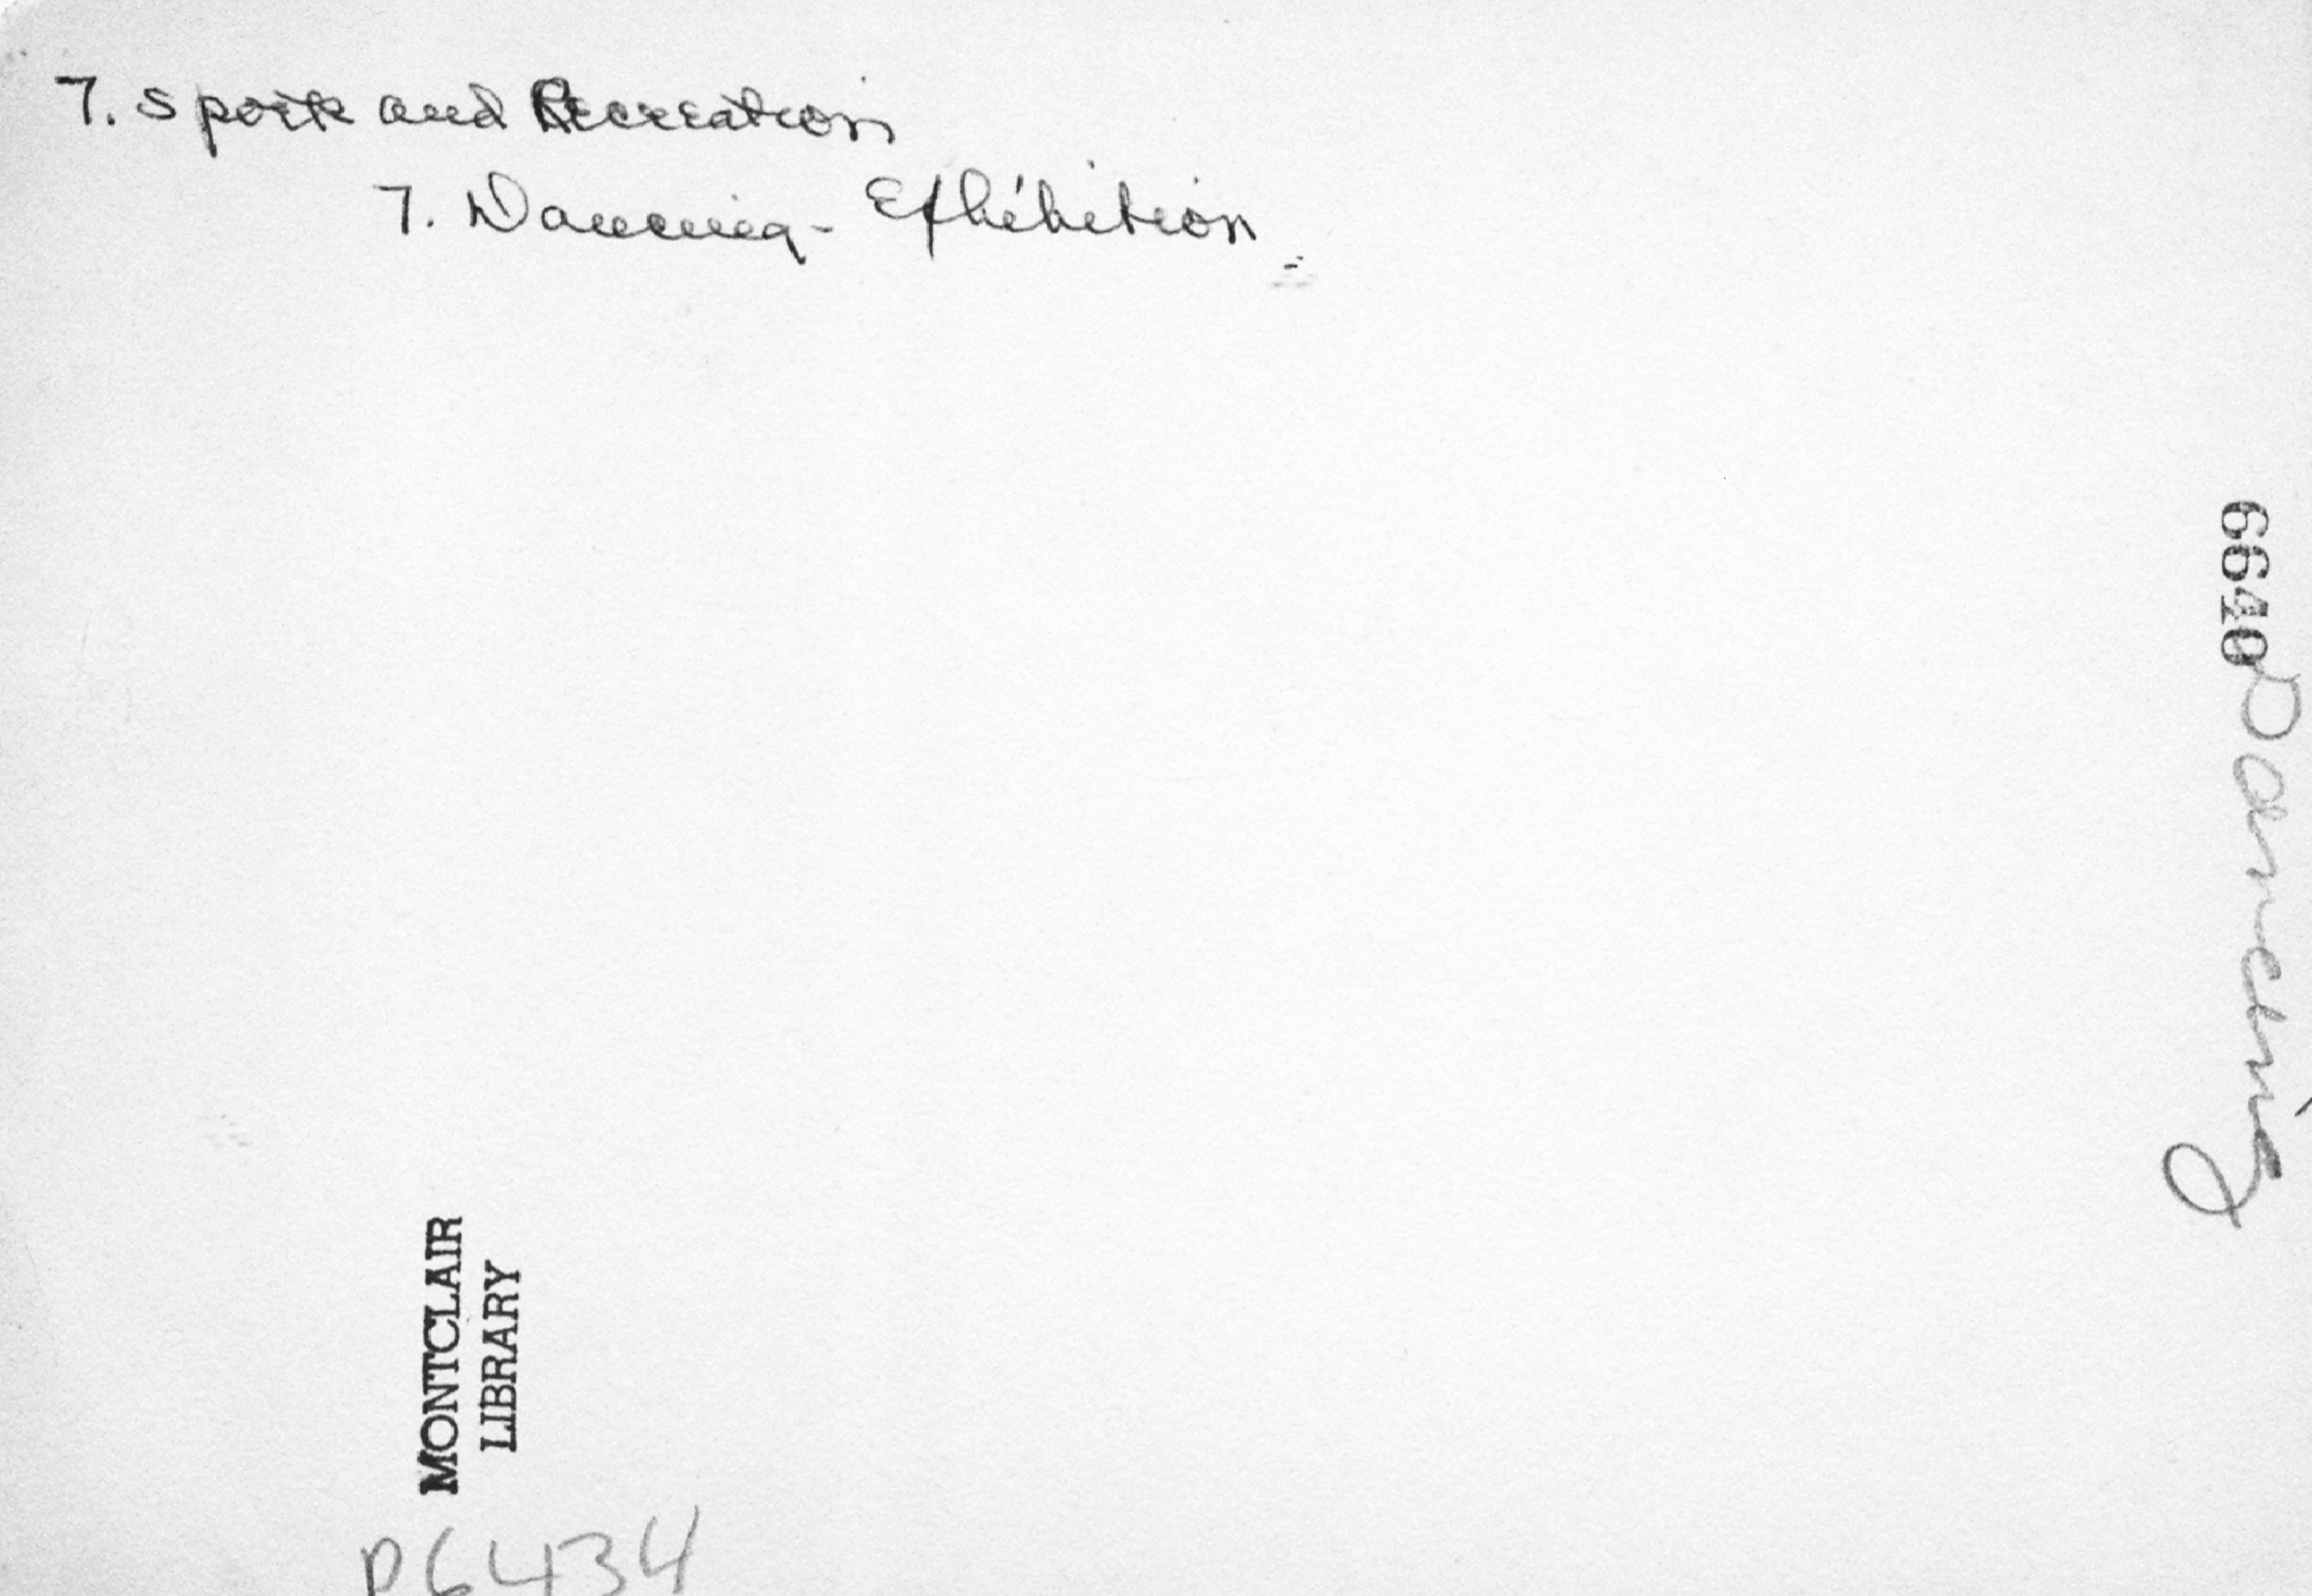 7. Sports and Recreation
7. Dancing - Exhibition
6640
Dancing
MONTCLAIR
LIBRARY
P6434